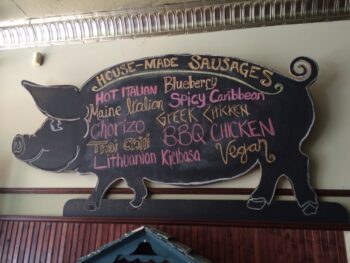 HOUSE-MADE SAUSAGES
HOT ITALIAN Blueberry
Maine Italian Spicy Caribbean
GREEK CHICKEN
Chorizo BBQ CHICKEN
Thai
Lithuanian Kielbasa Vegan